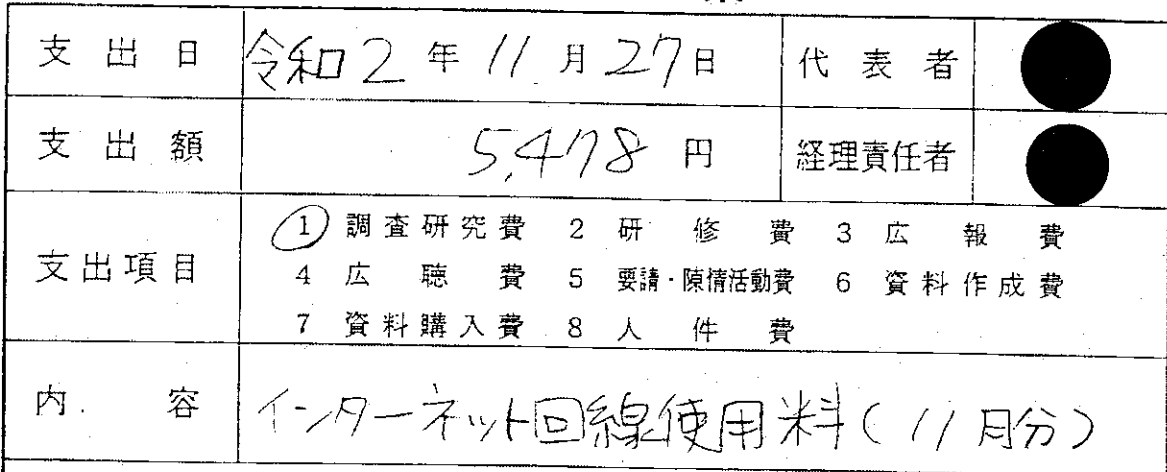 支出日 令和2年11月27日 代表者
支出額 5,478円 経理責任者
支出項目 1 調査研究費 2 研修費 3 広報費
4 広聴費 5 要請・陳情活動費 6 資料作成費
7 資料購入費 8 人件費
内容 インターネット回線使用料(11月分)